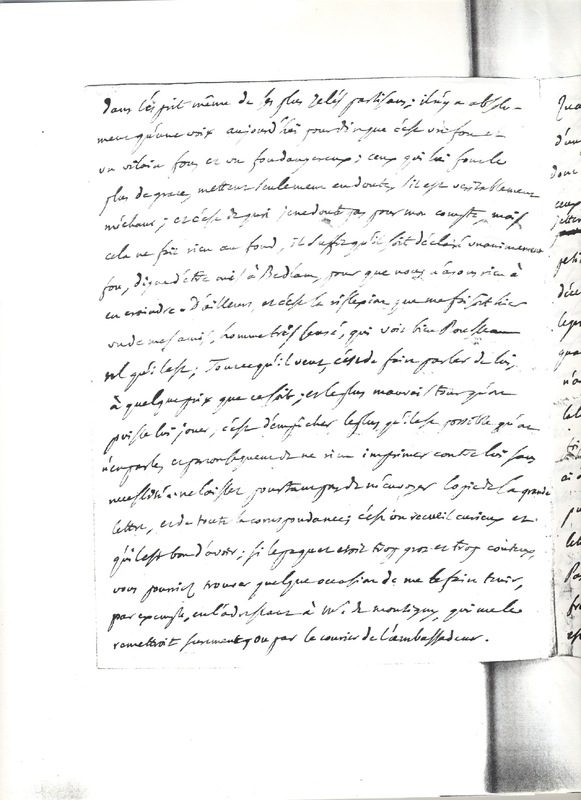 dans l'esprit même de ses plus zelés partisans; il n'y a absolu-
ment qu'une voix aujourd'hui pour dire que c'est un fou et
un vilain fou, et un fou dangereux; ceux qui lui font le
plus de grace, mettent seulement en doute, s'il est veritablement
méchant; et c'est de quoi je ne doute pas pour mon compte, mais
cela ne fait rien au fond, il suffit qu'il soit déclaré unanimement
fou, digne d'être mis à Bedlam, pour que nous n'ayons rien à
en craindre. D'ailleurs, et c'est la réflexion que me faisoit hier
un de mes amis, homme très sensé, qui voit bien Rousseau
tel qu'il est; Tout ce qu'il veut, c'est de faire parler de lui,
à quelque prix que ce soit; et le plus mauvais tour qu'on
puisse lui jouer, c'est d'empêcher le plus qu'il est possible qu'on
n'en parle, et par conséquent de ne rien imprimer contre lui sans
necessité. ne laissez pourtant pas de m'envoyer copie de la grande
lettre, et de toute la correspondance; c'est un recueil curieux et
qu'il est bon d'avoir; si le paquet etoit trop gros et trop couteux,
vous pourriez trouver quelque occasion de me le faire tenir,
par exemple, en l'adressant à Mr. de montigny, qui me le
remettroit surement, ou par le courier de l'ambassadeur.
d'un
dont
ceux